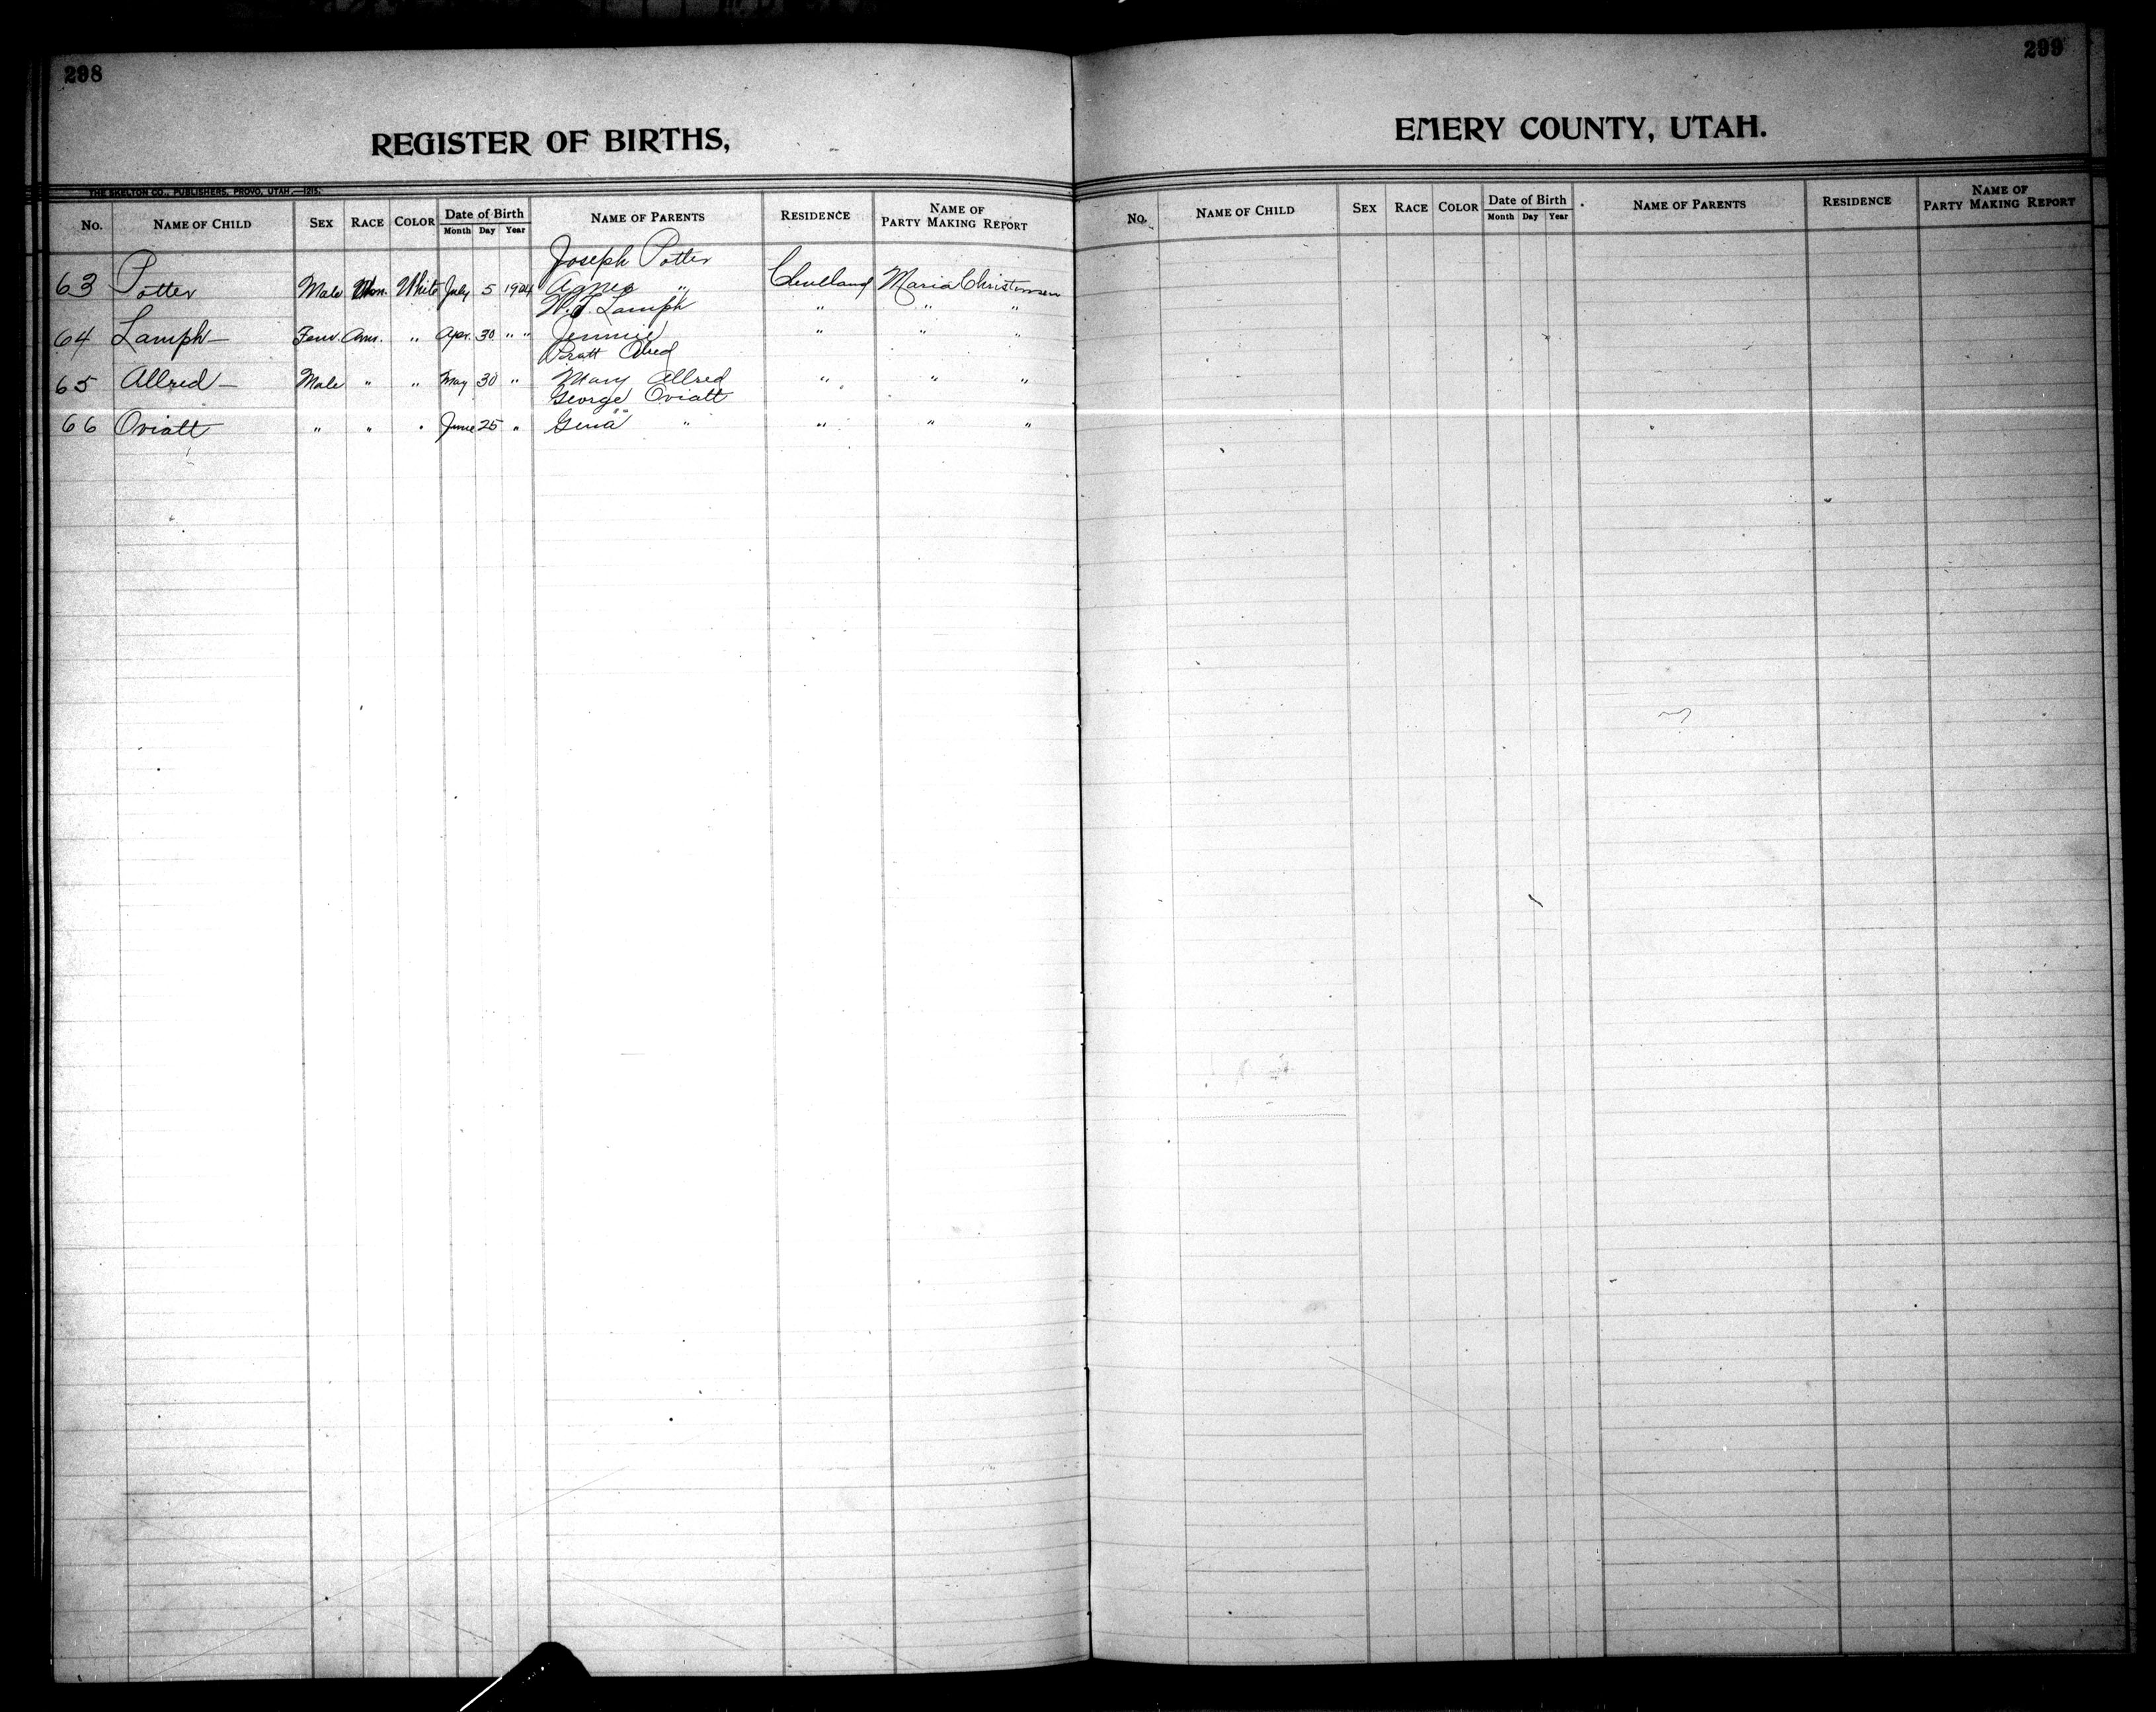 298
REGISTER OF BIRTHS,
THE SKELTON CO., PUBLISHERS, PROVO, UTAH.—1215.
No. NAME OF CHILD SEX RACE COLOR Date of Birth Month Day Year NAME OF PARENTS RESIDENCE NAME OF PARTY MAKING REPORT
Joseph Potter
63 Potter Male White July 5 1904 Agnes " Cleveland Maria Christensen
W. J. Lamph
64 Lamph— Fem. Am. " Apr. 30 " " Jennie " " "
Pratt
65 Allred— Male " " May 30 " Mary Allred " " "
George Oviatt
66 Oviatt " " " June 25 " Gena " " " "
299
EMERY COUNTY, UTAH.
No. NAME OF CHILD SEX RACE COLOR Date of Birth Month Day Year NAME OF PARENTS RESIDENCE NAME OF PARTY MAKING REPORT